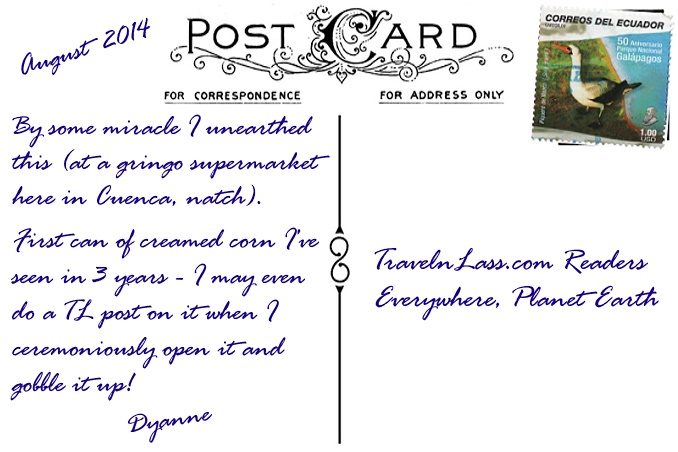 August 2014
POST CARD
FOR CORRESPONDENCE
FOR ADDRESS ONLY
CORREOS DEL ECUADOR
50 Aniversario
Parque Nacional
Galápagos
1.00
USD
By some miracle I unearthed
this (at a gringo supermarket
here in Cuenca, natch).
First can of creamed corn I've
seen in 3 years - I may even
do a TL post on it when I
ceremoniously open it and
gobble it up!
Dyanne
TravelnLass.com Readers
Everywhere, Planet Earth